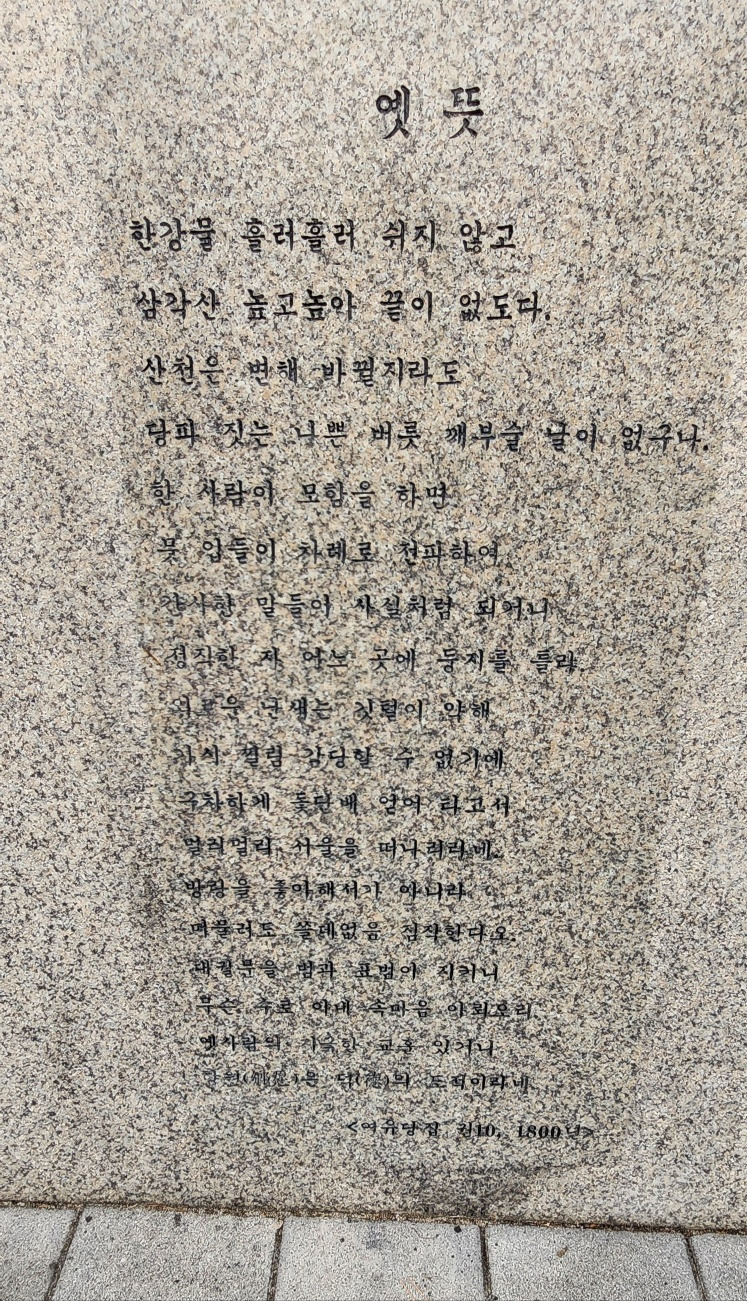 옛 뜻
한강물 흘러흘러 쉬지 않고
삼각산 높고높아 끝이 없도다.
산천은 변해 바뀔지라도
당파 짓는 나쁜 버릇 깨부술 날이 없구나.
한 사람이 모함을 하면
뭇 입들이 차례로 전파하여
간사한 말들이 사실처럼 되거니
정직한 자 어느 곳에 둥지를 틀랴.
외로운 난새는 깃털이 약해
가시 찔림 감당할 수 없기에
구차하게 돛단배 얻어 타고서
멀리멀리 서울을 떠나리라네.
방랑을 좋아해서가 아니라
머물러도 쓸데없음 짐작한다오.
대궐문을 범과 표범이 지키니
무슨 수로 이내 속마음 아뢰오리
옛사람의 지극한 교훈 있거니
향원(鄕愿)은 덕(德)의 도적이라네
<여유당집 권10, 1800년>